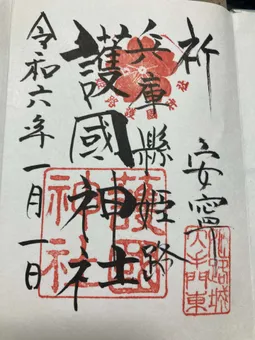 祈 安寧
兵庫縣姫路
護國神社
令和六年一月一日
護國
神社
姫路城
大手門東